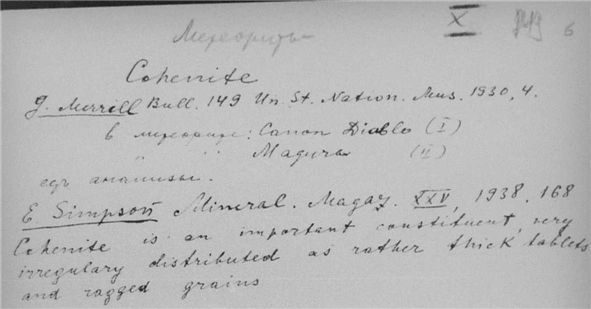 Метеориты
X
6
Cohenite
G. Merrill Bull. 149 Un. St. Nation. Mus. 1930, 4.
в метеорите: Canon Diablo (I)
" " Мадига (II)
есть анализы.
E Simpson Mineral. Magaz. XXV, 1938, 168
Cohenite is an important constituent, very
irregulary distributed as rather thick tablets
and ragged grains